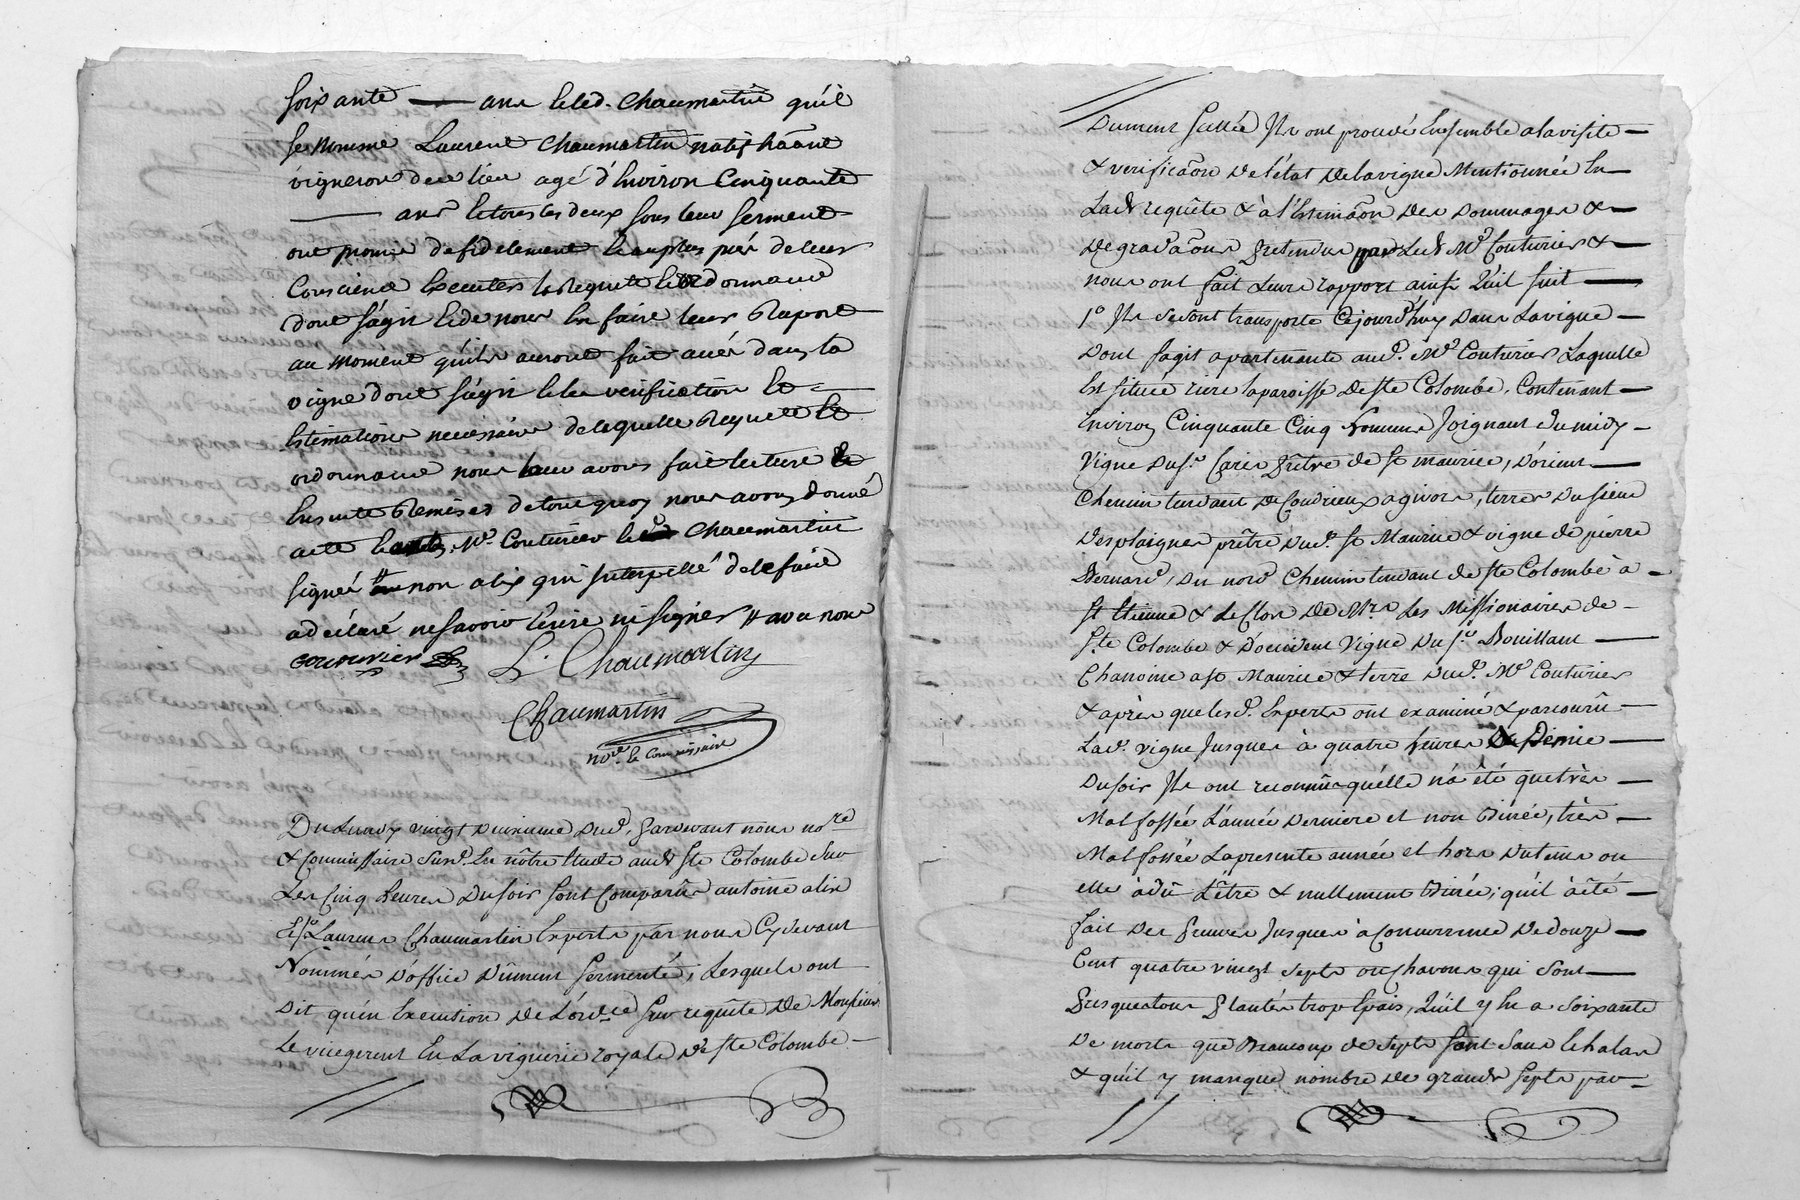 soixante ans et led. Chaumartin qu'il
se nomme Laurent Chaumartin natif
vigneron de ce lieu agé d'Environ Cinquante
ans et tous les deux sous leur serment
ont promis de fidelement et au plus près de leur
Conscience Executer la Requete et ordonnance
dont s'agit et de nous En faire leur Raport
au moment qu'ils auront fait dans la
vigne dont s'agit et la verification Et
Estimation necessaire de laquelle Requete Et
ordonnance nous leur avons fait lecture
Ensuitte Remises de tout quoy nous avons donné
acte Me. Couturier Chaumartin
signé non alix qui Interpellé de le faire
a déclaré ne savoir écrire ni signer avec nous
couturier L. Chaumartin
Chaumartin
nore. le Commissaire
Du Lundy vingt deuxieme dud. pardevant nous nore
& Commissaire susd. En nôtre Etude audt Ste Colombe sur
Les Cinq heures du soir sont Comparûs antoine alix
& Sr Laurens Chaumartin Experts par nous Cy devant
Nommés D'office Dûment sermentés; Lesquels ont
dit qu'en Execution de L'ordce sur requête de Monsieur
Le vicegerent En La viguerie royale de Ste Colombe
Dument scellée Ils ont procedé Ensemble a la visite
& verificaon de l'état de la vigne Mentionnée En
Ladt requête & à l'Estimaon des Dommages &
degradaons pretendus par Ledt Me Couturier &
nous ont fait leurs rapport ainsi Qu'il suit
1° Ils se sont transporte Cejourd'huy dans La vigne
dont sagit apartenante aud. Me Couturier Laquelle
Est située riere la paroisse de Ste Colombe, Contenant
Environ Cinquante Cinq hommes Joignant du midy
Vigne du Sr. prêtre de St maurice, D'orient
Chemin tendant de Condrieux a givors, terres du sieur
Desplaignes prêtre dud. St Maurice & vigne de pierre
Bernard, du nord Chemin tendant de Ste Colombe à
St Etienne & Le Clos de Mrs Les Missionaires de
Ste Colombe & D'occident Vigne du Sr. Bouillant
Chanoine a St Maurice & terre dud. Me Couturier
& après que lesd. Experts ont examiné & parcourû
Lad. vigne Jusques à quatre heures & Demie
du soir Ils ont reconnû qu'elle n'a été que très
Mal fossée L'année derniere et non Binée, très
Mal fossée La presente année et hors du tems ou
elle a dû L'être & nullement Binée; qu'il a été
fait des preuves Jusques à Concurrence de douze
Cent quatre vingt septs ou Chavons qui sont
presque tous plantés trop Epais, Qu'il y En a soixante
de morts que Beaucoup de septs sont sans Echalas
& qu'il y manque nombre de grands septs par